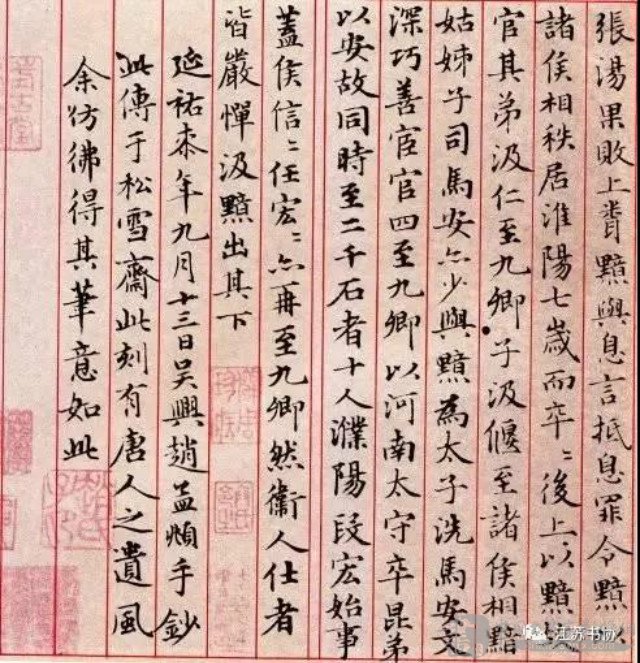 張湯果敗上聞黯與息言抵息罪令黯以
諸侯相秩居淮陽七歲而卒〻後上以黯故
官其弟汲仁至九卿子汲偃至諸侯相黯
姑姊子司馬安亦少與黯為太子洗馬安文
深巧善宦官四至九卿以河南太守卒昆弟
以安故同時至二千石者十人濮陽段宏始事
蓋侯信〻任宏〻亦再至九卿然衛人仕者
皆嚴憚汲黯出其下
延祐柒年九月十三日吳興趙孟頫手鈔
此傳于松雪齋此刻有唐人之遺風
余仿彿得其筆意如此
江苏书协